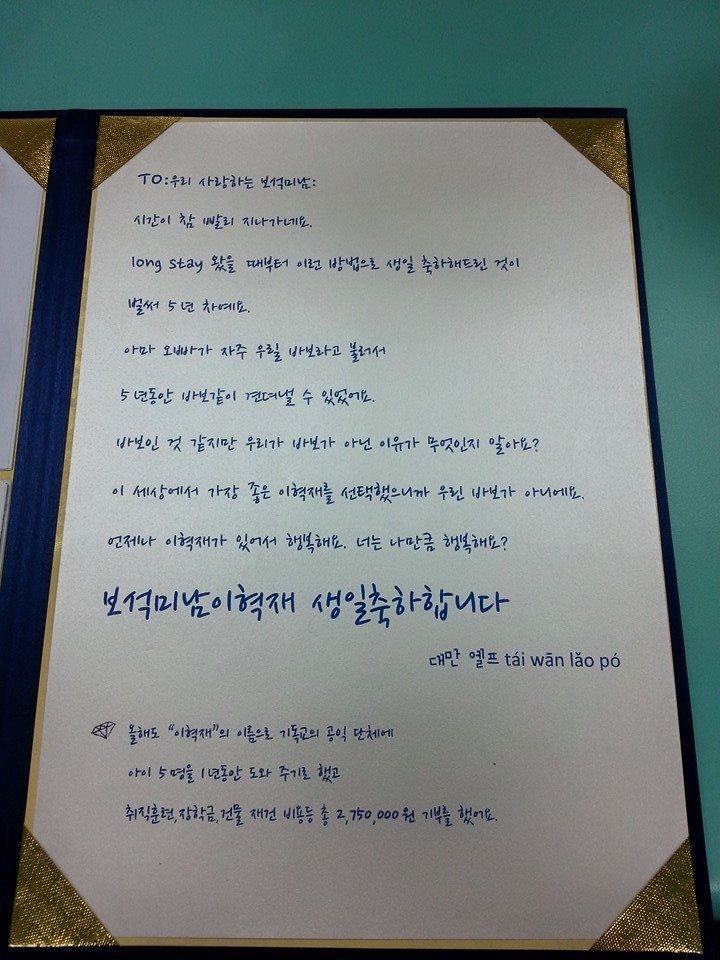 TO:우리 사랑하는 보석미남:
시간이 참 빨리 지나가네요.
long stay 왔을 때부터 이런 방법으로 생일 축하해드린 것이
벌써 5년 차예요.
아마 오빠가 자주 우릴 바보라고 불러서
5년동안 바보같이 견뎌낼 수 있었어요.
바보인 것 같지만 우리가 바보가 아닌 이유가 무엇인지 알아요?
이 세상에서 가장 좋은 이혁재를 선택했으니까 우린 바보가 아니에요.
언제나 이혁재가 있어서 행복해요. 너는 나만큼 행복해요?
보석미남이혁재 생일축하합니다
대만 엘프 tái wān lǎo pó
올해도 “이혁재”의 이름으로 기독교의 공익 단체에
아이 5명을 1년동안 도와 주기로 했고
취직훈련,장학금,건물 재건 비용등 총 2,750,000원 기부를 했어요.